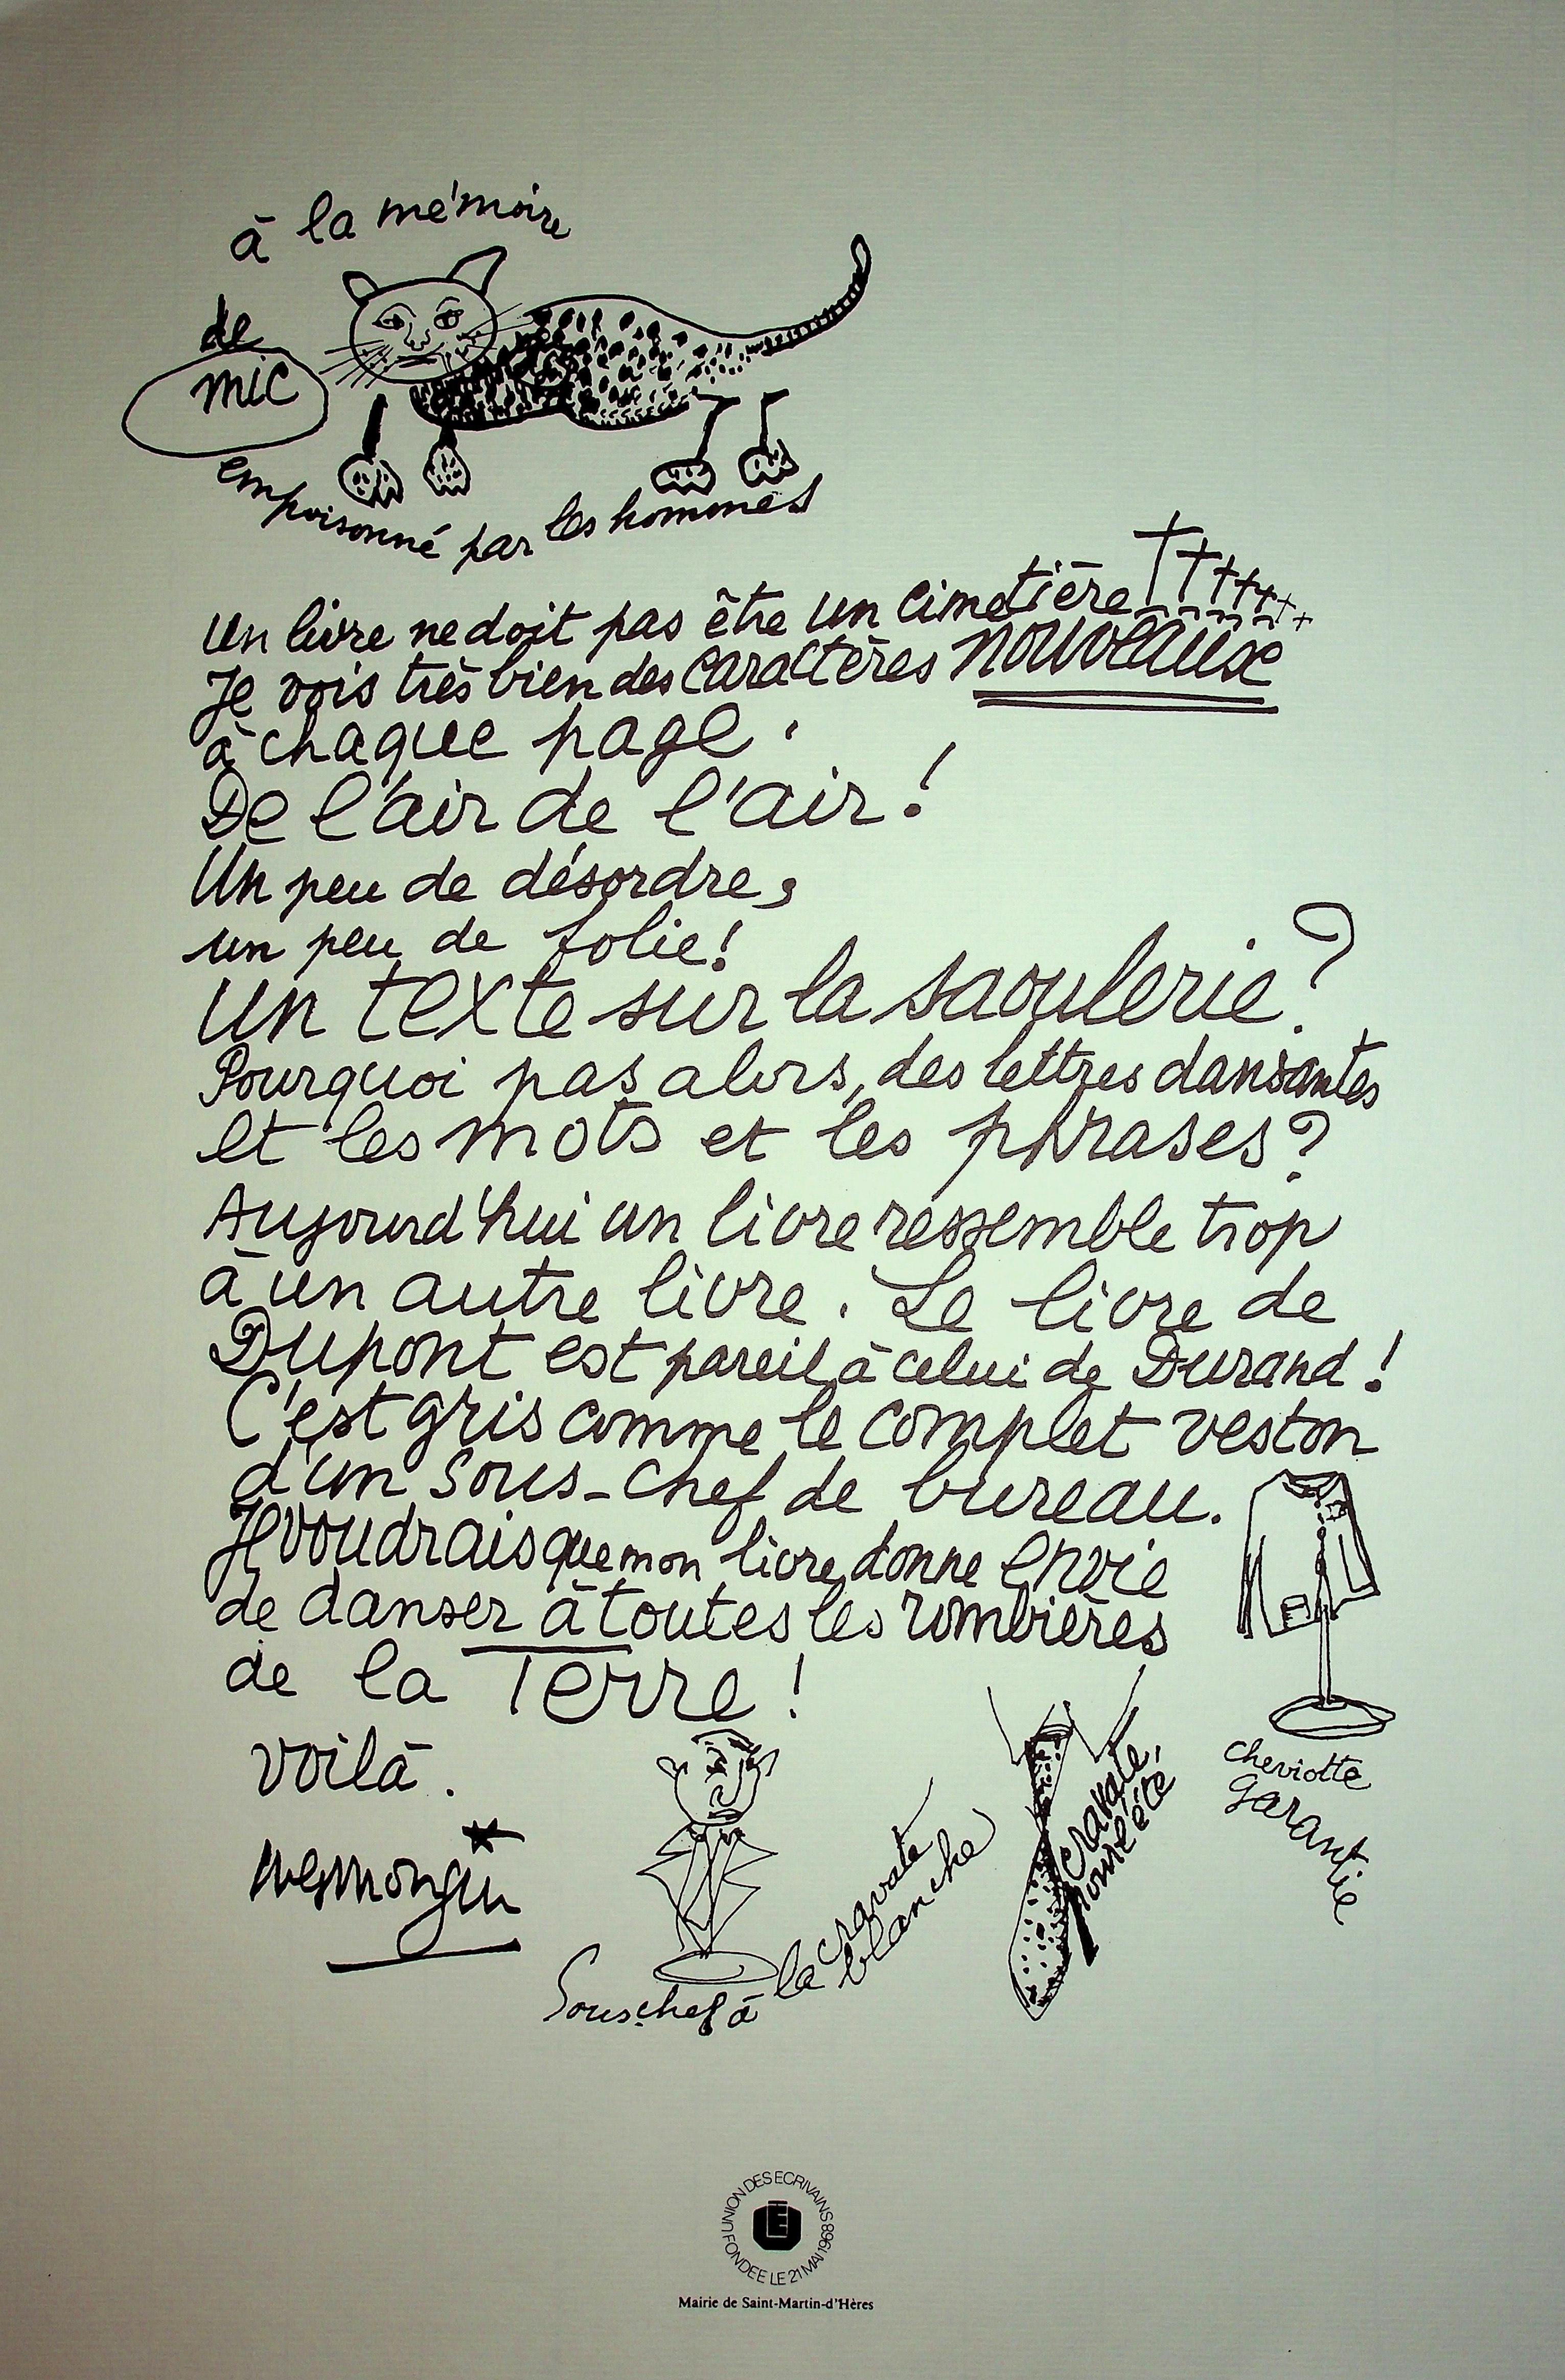 à la mémoire
de
mic
empoisonné par les hommes
Un livre ne doit pas être un cimetière
Je vois très bien des caractères nouveaux
à chaque page.
De l'air de l'air!
Un peu de désordre,
un peu de folie!
Un texte sur la saoulerie?
Pourquoi pas alors, des lettres dansantes
et les mots et les phrases?
Aujourd'hui un livre ressemble trop
à un autre livre. Le livre de
Dupont est pareil à celui de Durand!
C'est gris comme le complet veston
d'un sous-chef de bureau.
Je voudrais que mon livre donne envie
de danser à toutes les rombières
de la Terre!
voilà.
Sous chef à
la cravate
blanche
cravate,
cheviotte
garantie
UNION DES ECRIVAINS
FONDEE LE 21 MAI 1968
UE
Mairie de Saint-Martin-d'Hères